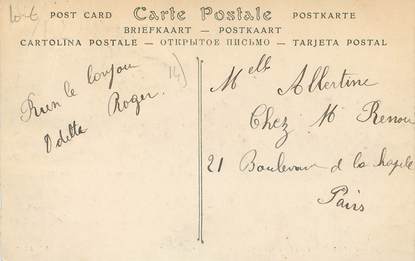 POST CARD — Carte Postale — POSTKARTE
BRIEFKAART — POSTKAART
CARTOLINA POSTALE — ОТКРЫТОЕ ПИСЬМО — TARJETA POSTAL
le bonjour
Odetta Roger.
Melle Albertine
Chez Mr Renou
21 Boulevard de la chapelle
Paris